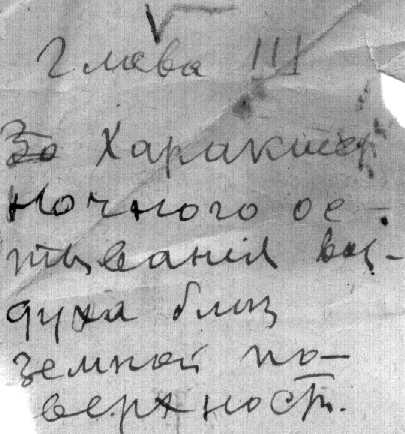 Глава III
Характер
ночного ос-
тывания воз-
духа близ
земной по-
верхност.